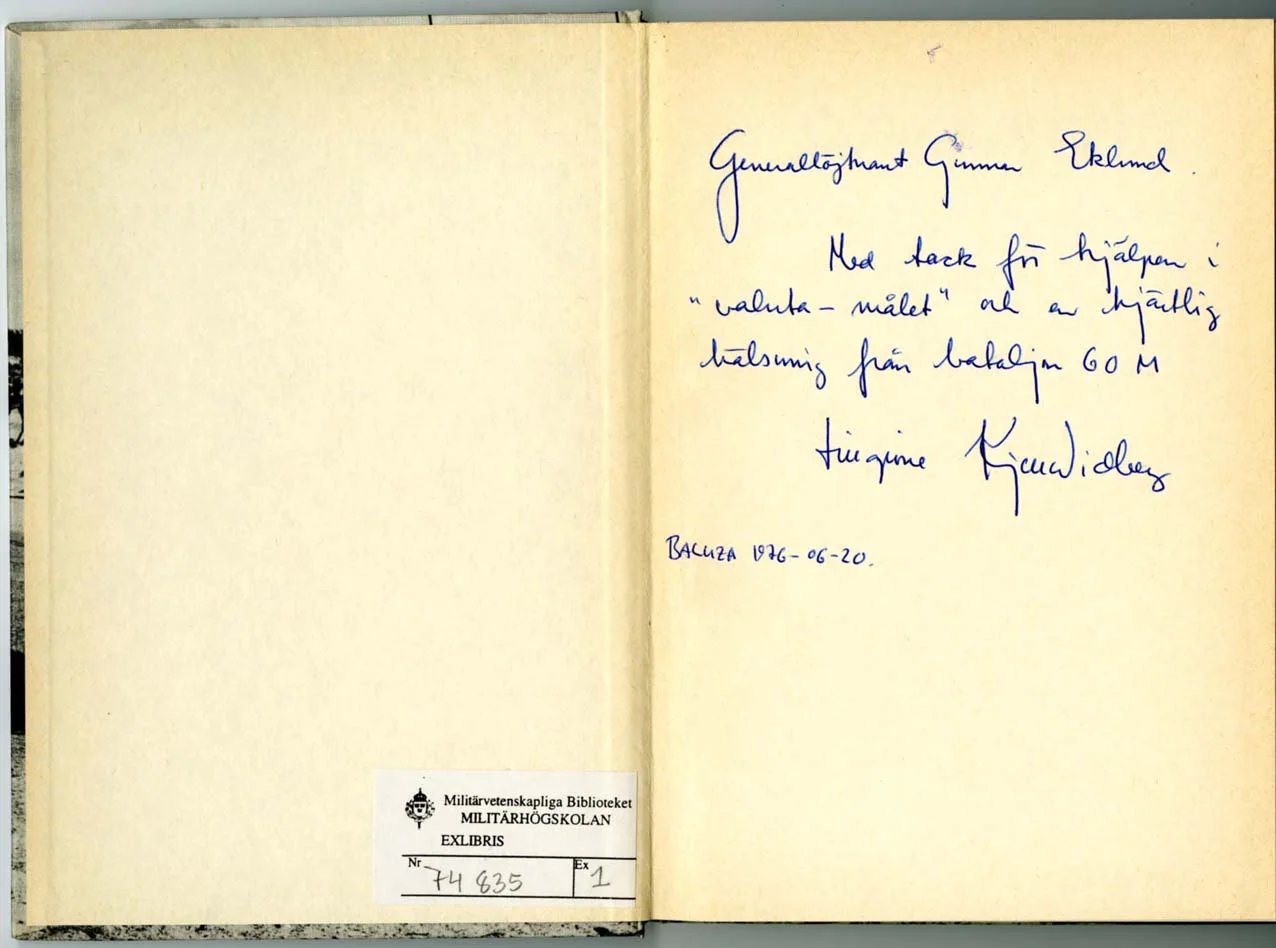 Generallöjtnant Gunnar Eklund.
Med tack för hjälpen i
"valuta-målet" och en hjärtlig
hälsning från bataljon 60 M
Widberg
BALUZA 1976-06-20.
Militärvetenskapliga Biblioteket
MILITÄRHÖGSKOLAN
EXLIBRIS
Nr 74 835 Ex 1